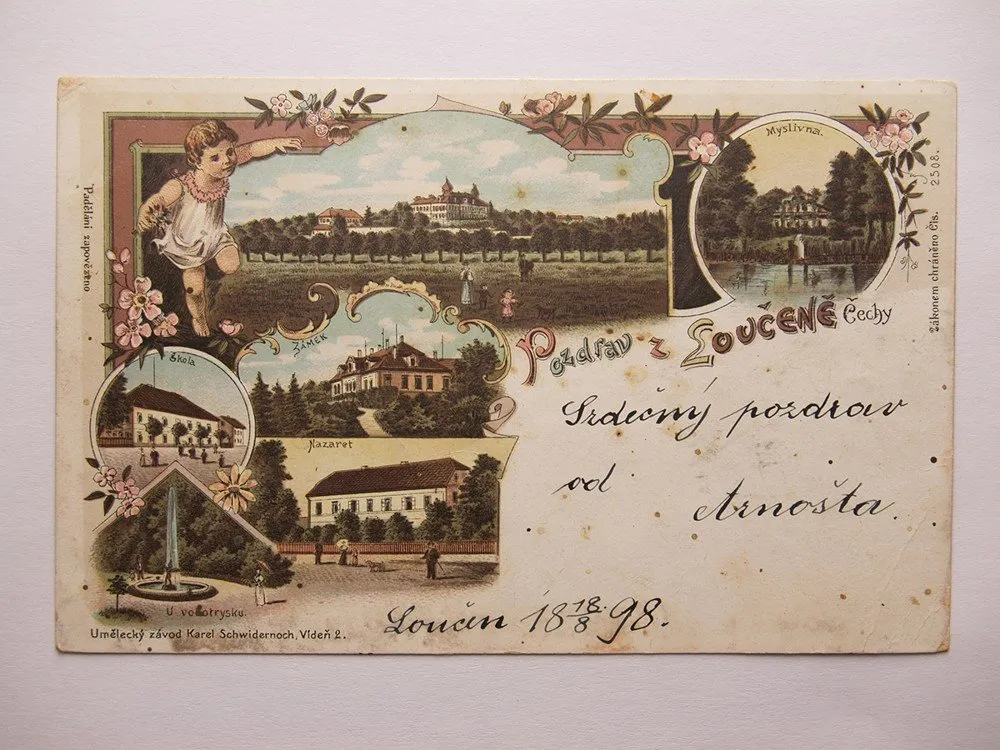 Myslivna.
Padělání zapovězeno
Zákonem chráněno Čís. 2508.
Pozdrav z Loučeně Čechy
Zámek
Škola
Nazaret
Srdečný pozdrav
od
Arnošta.
U vodotrysku.
Loučn 18 18/8 98.
Umělecký závod Karel Schwidernoch, Vídeň 2.